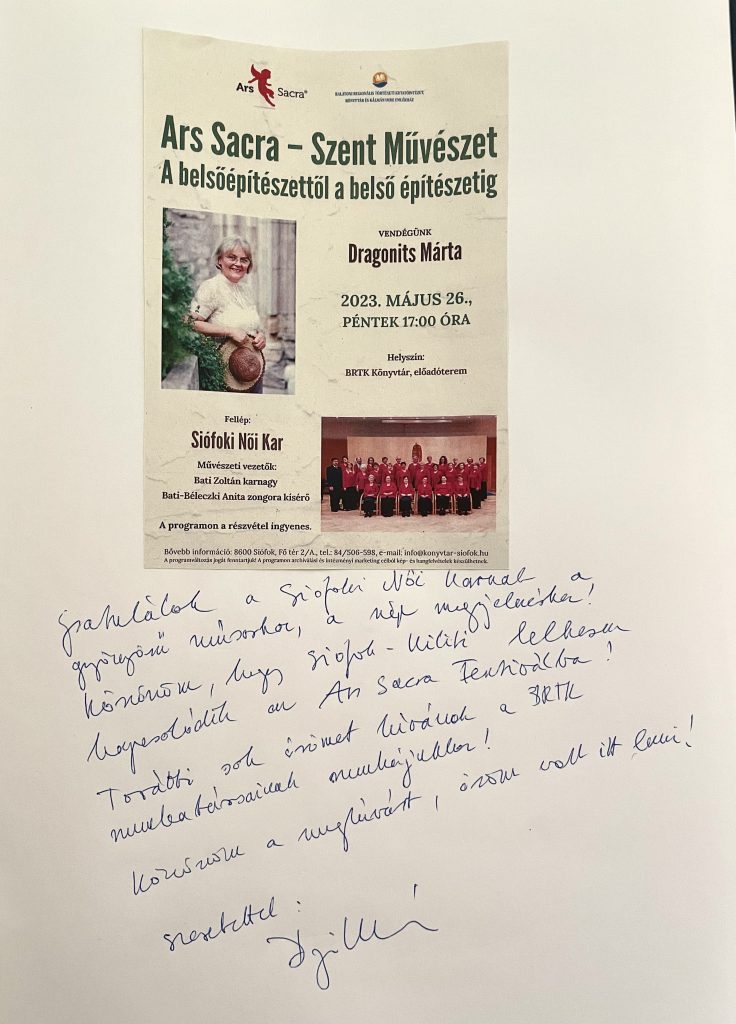 Ars Sacra®
BALATONI REGIONÁLIS TÖRTÉNETI KUTATÓINTÉZET,
KÖNYVTÁR ÉS KÁLMÁN IMRE EMLÉKHÁZ
Ars Sacra – Szent Művészet
A belsőépítészettől a belső építészetig
VENDÉGÜNK
Dragonits Márta
2023. MÁJUS 26.,
PÉNTEK 17:00 ÓRA
Helyszín:
BRTK Könyvtár, előadóterem
Fellép:
Siófoki Női Kar
Művészeti vezetők:
Bati Zoltán karnagy
Bati-Béleczki Anita zongora kísérő
A programon a részvétel ingyenes.
Bővebb információ: 8600 Siófok, Fő tér 2/A., tel.: 84/506-598, e-mail: info@konyvtar-siofok.hu
A programváltozás jogát fenntartjuk! A programon archiválási és intézményi marketing célból kép- és hangfelvételek készülhetnek.
Gratulálok a Siófoki Női Karnak a
gyönyörű műsorhoz, a szép megjelenéshez!
Köszönöm, hogy Siófok-Kiliti lelkesen
kapcsolódik az Ars Sacra Fesztiválba!
További sok örömet kívánok a BRTK
munkatársainak munkájukhoz!
Köszönöm a meghívást, öröm volt itt lenni!
szeretettel: